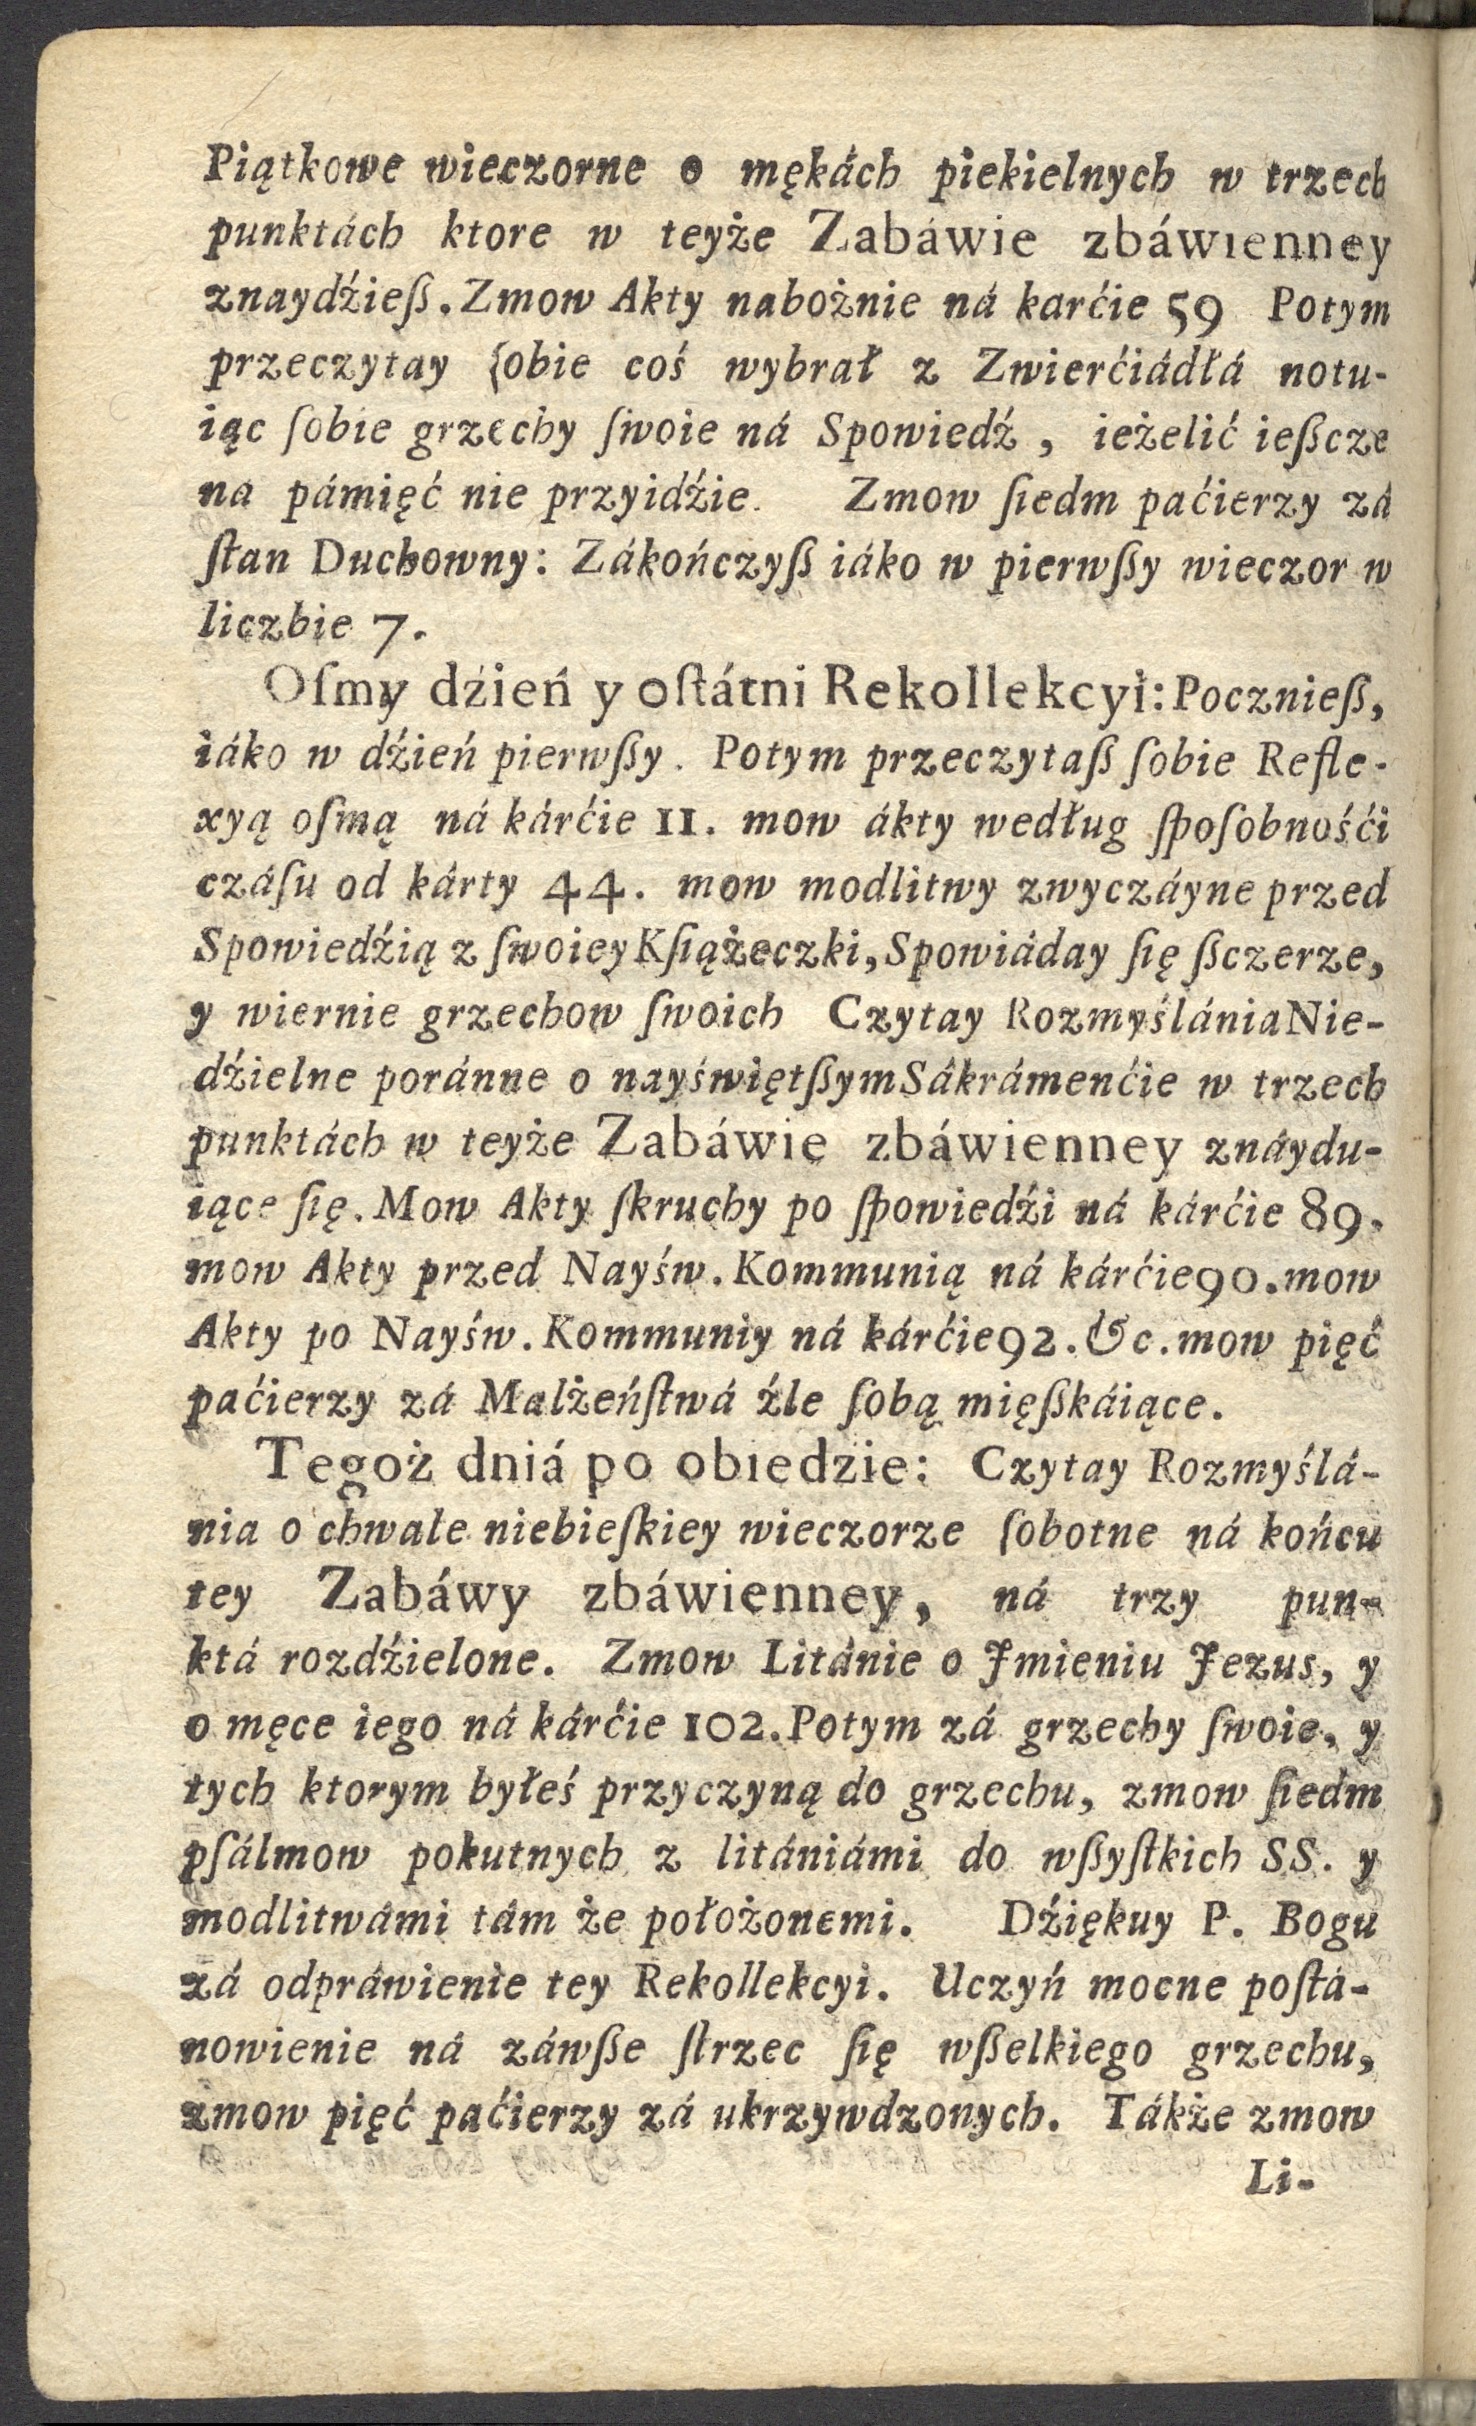 Piątkowe wieczorne o mękách piekielnych w trzech
punktách ktore w teyże Zabáwie zbáwienney
znaydźieß. Zmow Akty nabożnie ná karćie 59 Potym
przeczytay ſobie coś wybrał z Zwierćiádłá notu-
iąc ſobie grzechy ſwoie ná Spowiedź, ieżelić ießcze
na pámięć nie przyidźie. Zmow ſiedm paćierzy zá
ſtan Duchowny: Zákończyß iáko w pierwßy wieczor w
liczbie 7.
Oſmy dźień y oſtátni Rekollekcyi: Pocznieß,
iáko w dźień pierwßy. Potym przeczytaß ſobie Refle-
xyą oſmą ná kárćie 11. mow ákty według ſpoſobnośći
czáſu od kárty 44. mow modlitwy zwyczáyne przed
Spowiedźią z ſwoiey Kſiążeczki, Spowiáday ſię ßczerze,
y wiernie grzechow ſwoich Czytay Rozmyślánia Nie-
dźielne poránne o nayświętßym Sákrámenćie w trzech
punktách w teyże Zabáwie zbáwienney znáydu-
iące ſię. Mow Akty ſkruchy po ſpowiedźi ná kárćie 89.
mow Akty przed Nayśw. Kommunią ná kárćie 90. mow
Akty po Nayśw. Kommuniy ná kárćie 92. &c. mow pięć
paćierzy zá Malżeńſtwá źle ſobą mięßkáiące.
Tegoż dniá po obiedzie: Czytay Rozmyślá-
nia o chwale niebieſkiey wieczorze ſobotne ná końcu
tey Zabáwy zbáwienney, ná trzy pun-
ktá rozdźielone. Zmow Litánie o Jmieniu Jezus, y
o męce iego ná kárćie 102. Potym zá grzechy ſwoie, y
tych ktorym byłeś przyczyną do grzechu, zmow ſiedm
pſálmow pokutnych z litániámi do wßyſtkich SS. y
modlitwámi tám że położonemi. Dźiękuy P. Bogu
zá odpráwienie tey Rekollekcyi. Uczyń mocne poſtá-
nowienie ná záwße ſtrzec ſię wßelkiego grzechu,
zmow pięć paćierzy zá ukrzywdzonych. Tákże zmow
Li-